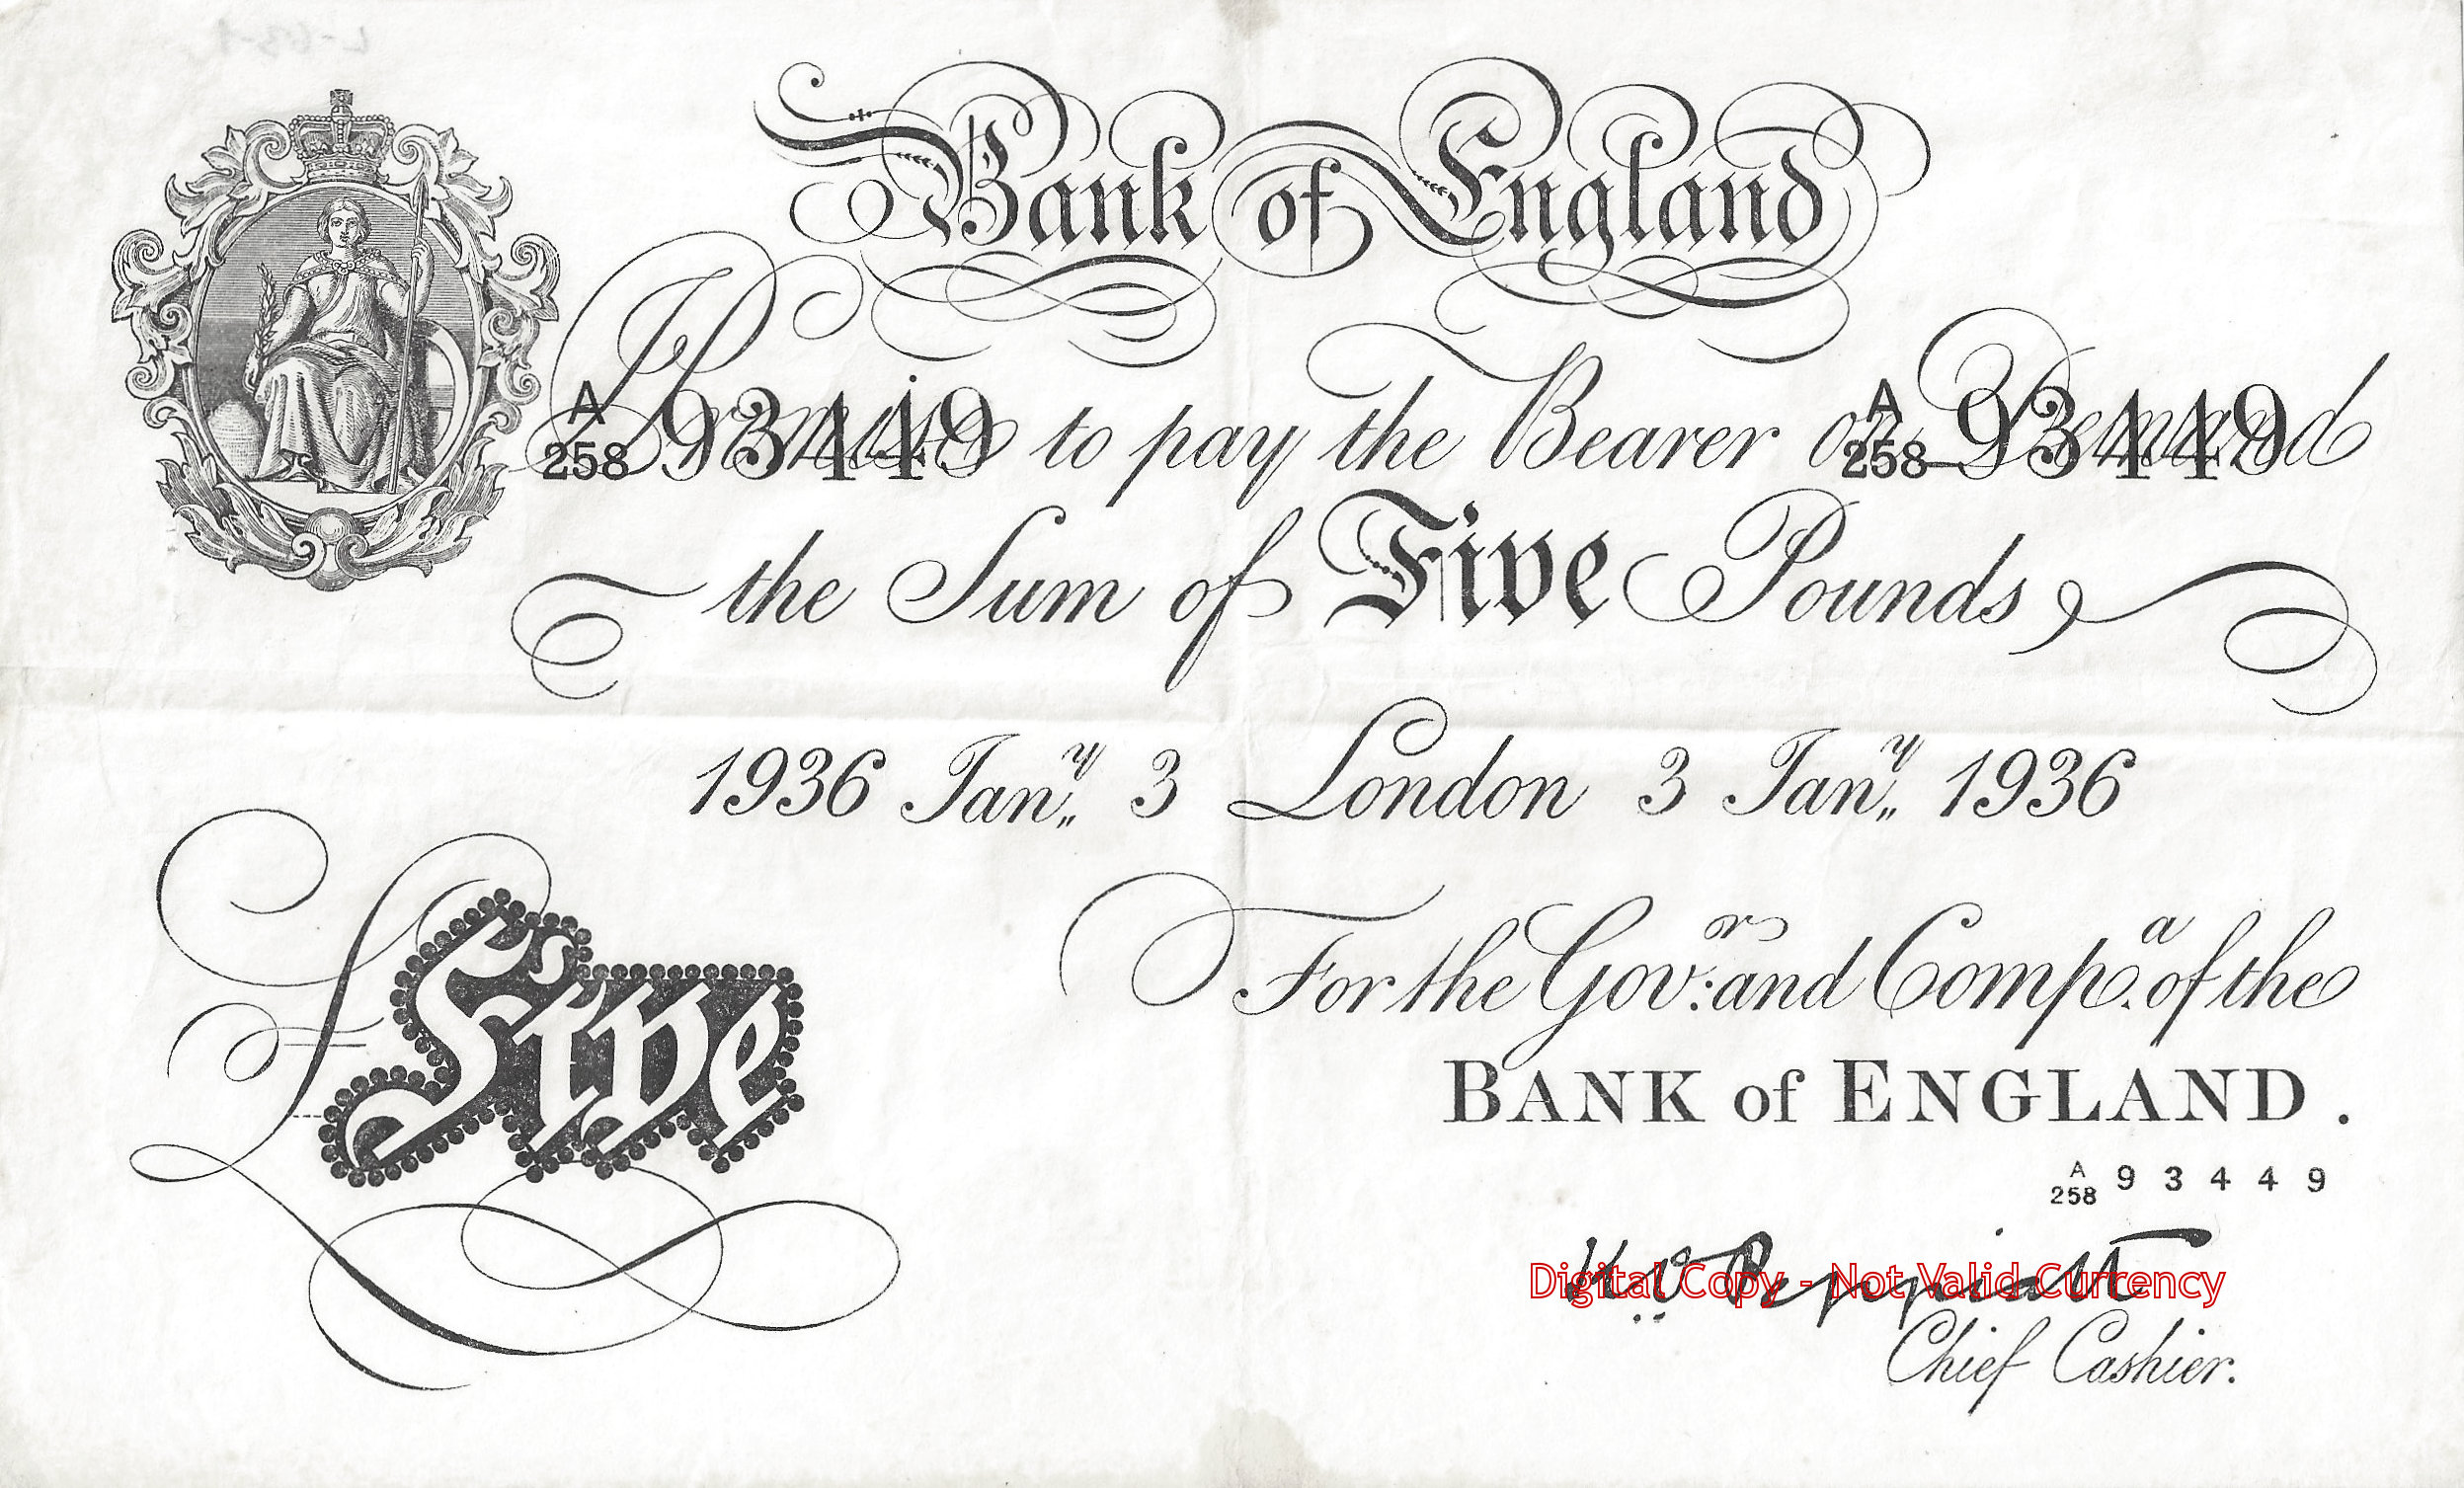 Bank of England
A 258 93449 Promise to pay the Bearer on Demand A 258 93449
the Sum of Five Pounds
1936 Jany 3 London 3 Jany 1936
For the Govor: and Compa. of the
BANK of ENGLAND.
Five
A 258 93449
K. O. Peppiatt
Digital Copy - Not Valid Currency
Chief Cashier.